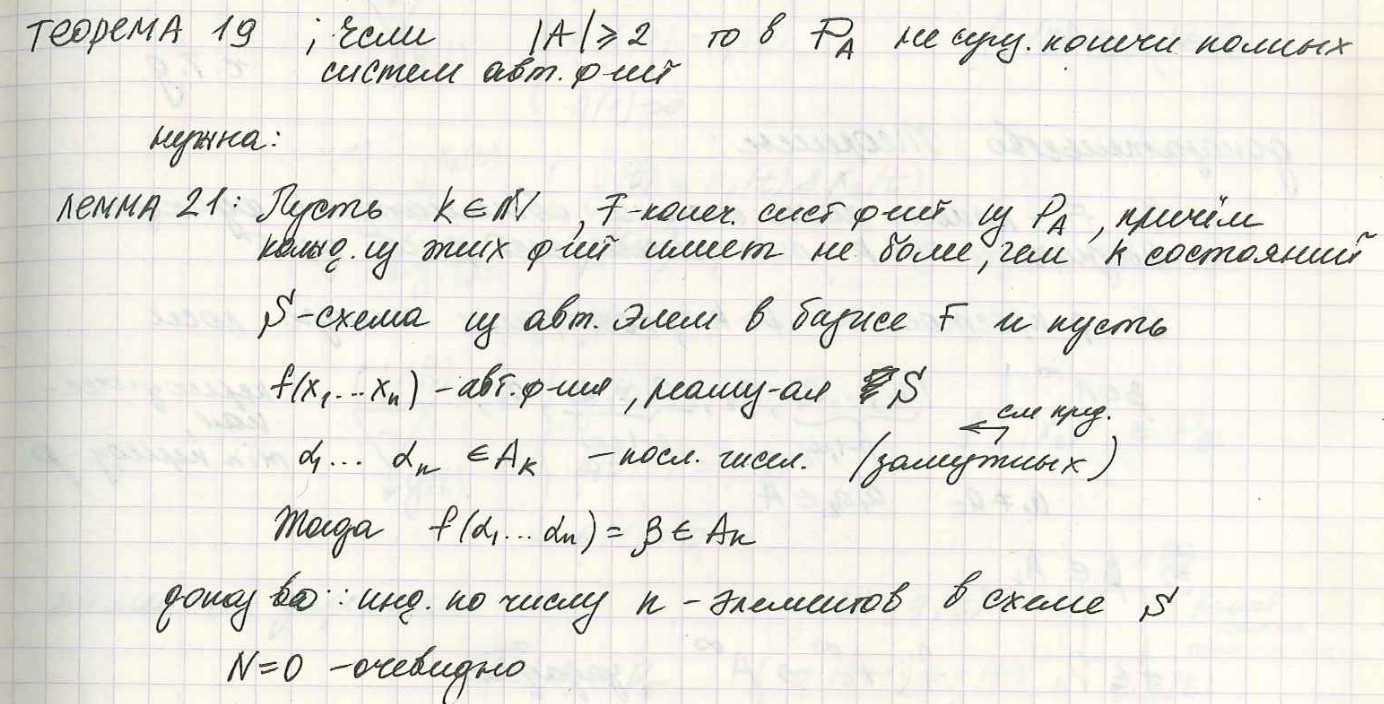 ТЕОРЕМА 19 ; если |A| ⩾ 2 то в P_A не сущ. конечн полных
систем авт. ф-ий
нужна:
ЛЕММА 21: Пусть k ∈ N, F-конеч. сист ф-ий из P_A, причём
кажд. из этих ф-ий имеет не более, чем k состояний
S-схема из авт. элем в базисе F и пусть
f(x₁...xₙ) – авт. ф-ия, реализу-ая S
см пред.
α₁... αₙ ∈ A_k – посл. чисел. (
)
Тогда f(α₁... αₙ) = β ∈ A_k
доказ во: инд. по числу n – элементов в схеме S
N=0 – очевидно